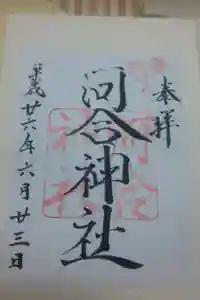 奉拝
河合神社
平成廿六年六月廿三日